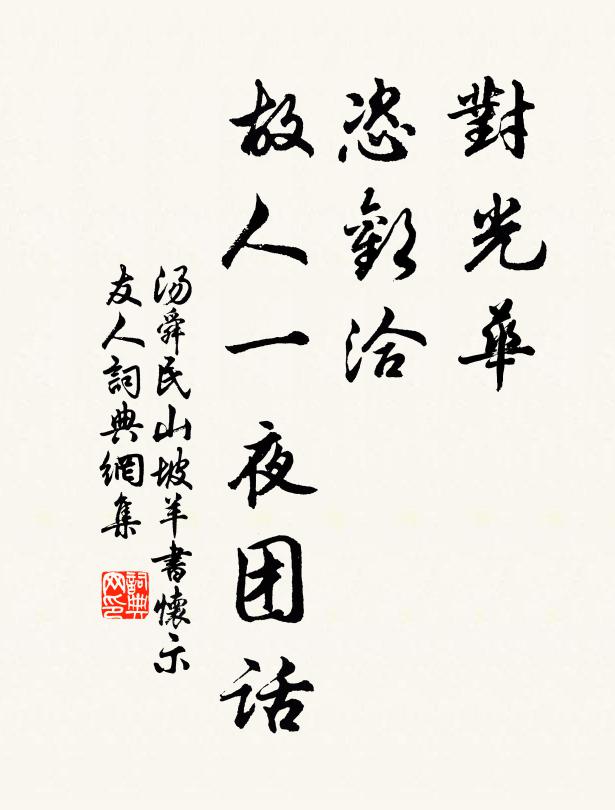 對光華
恣歡洽
故人一夜团話
汤舜民山坡羊書懷示
友人詞典網集
詞典
网印